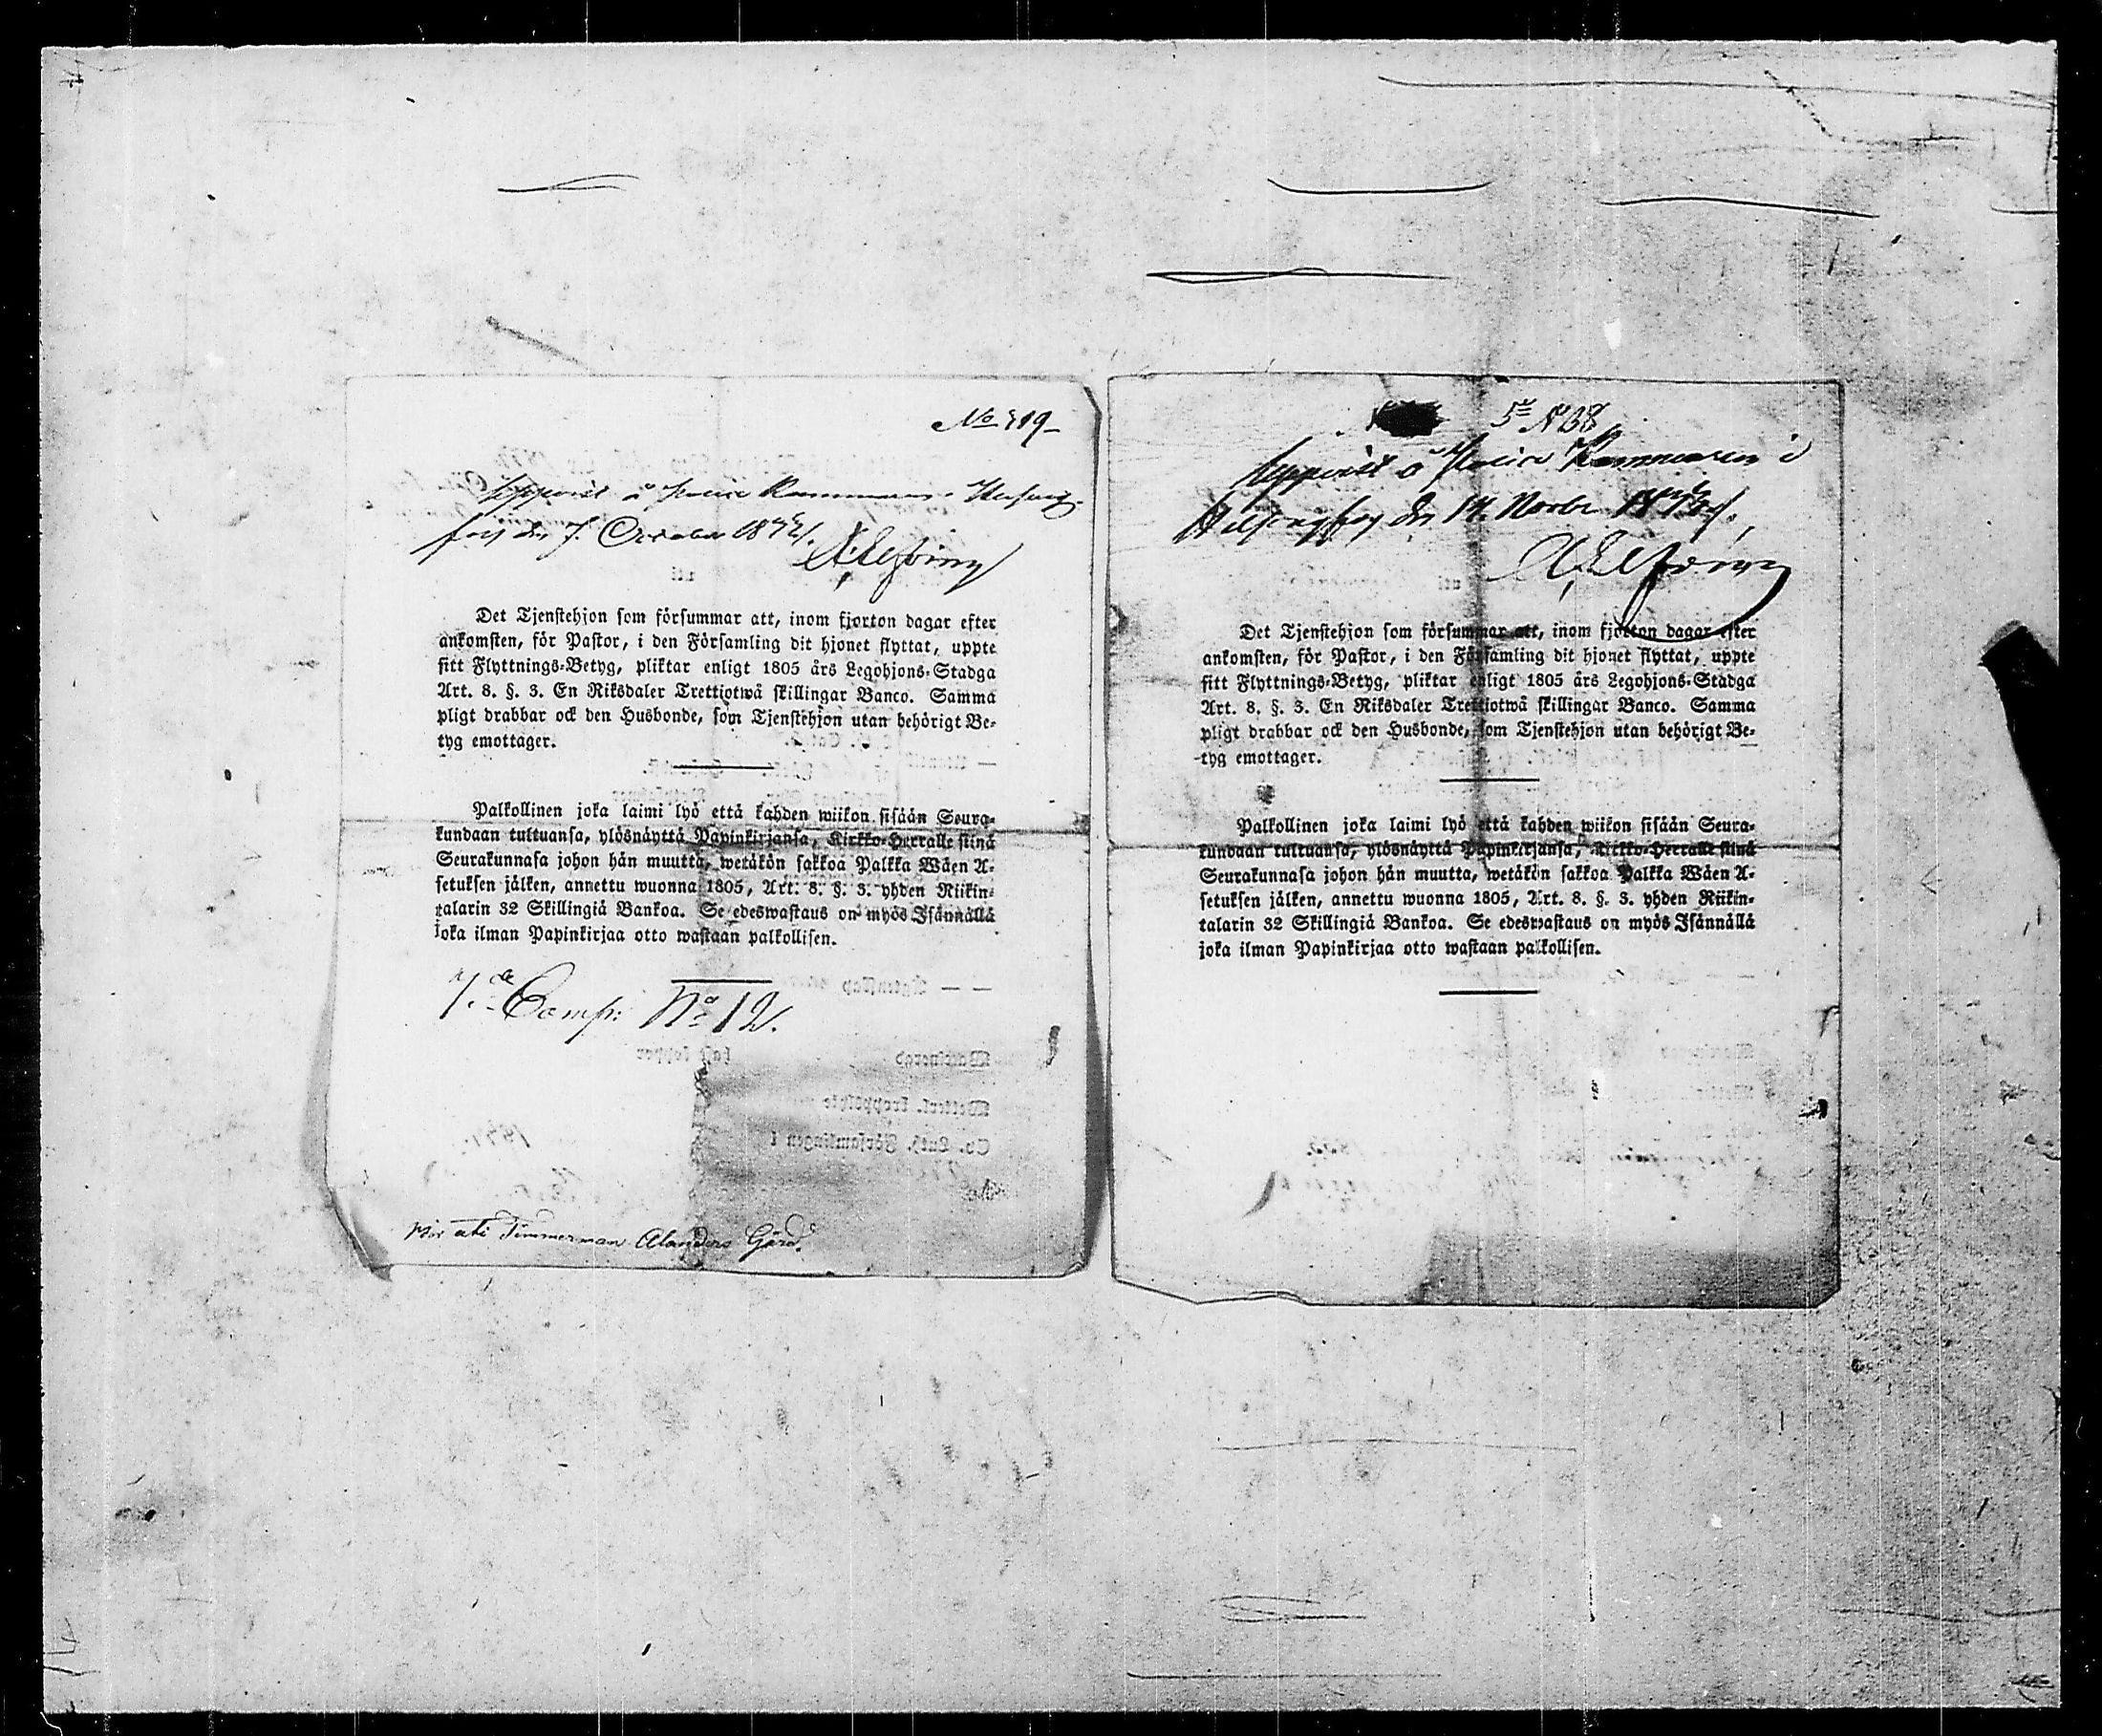 No 319
Uppvist å Police Kammaren i Helsing-
fors den 7. October 1842.
Det Tjenstehjon som försummar att, inom fjorton dagar efter
ankomsten, för Pastor, i den Församling dit hjonet flyttat, uppte
sitt Flyttnings-Betyg, pliktar enligt 1805 års Legohjons-Stadga
Art. 8. §. 3. En Riksdaler Trettiotwå skillingar Banco. Samma
pligt drabbar ock den Husbonde, som Tjenstehjon utan behörigt Be-
tyg emottager.
Palkollinen joka laimi lyö että kahden wiikon sisään Seura-
kundaan tultuansa, ylösnäyttä Papinkirjansa, Kirkko-Herralle siinä
Seurakunnasa johon hän muutta, wetäkön sakkoa Palkka Wäen A-
setuksen jälken, annettu wuonna 1805, Art. 8. §. 3. yhden Riikin-
talarin 32 Skillingiä Bankoa. Se edeswastaus on myös Isännällä
joka ilman Papinkirjaa otto wastaan palkollisen.
Comp: No 12.
Bor uti Timmerman Alanders Gård.
5te No 38
Uppvist å Police Kammaren i
Helsingfors den 14 Novbr
Det Tjenstehjon som försummar att, inom fjorton dagar efter
ankomsten, för Pastor, i den Församling dit hjonet flyttat, uppte
sitt Flyttnings-Betyg, pliktar enligt 1805 års Legohjons-Stadga
Art. 8. §. 3. En Riksdaler Trettiotwå skillingar Banco. Samma
pligt drabbar ock den Husbonde, som Tjenstehjon utan behörigt Be-
tyg emottager.
Palkollinen joka laimi lyö että kahden wiikon sisään Seura-
kundaan tultuansa, ylösnäyttä Papinkirjansa, Kirkko-Herralle siinä
Seurakunnasa johon hän muutta, wetäkön sakkoa Palkka Wäen A-
setuksen jälken, annettu wuonna 1805, Art. 8. §. 3. yhden Riikin-
talarin 32 Skillingiä Bankoa. Se edeswastaus on myös Isännällä
joka ilman Papinkirjaa otto wastaan palkollisen.